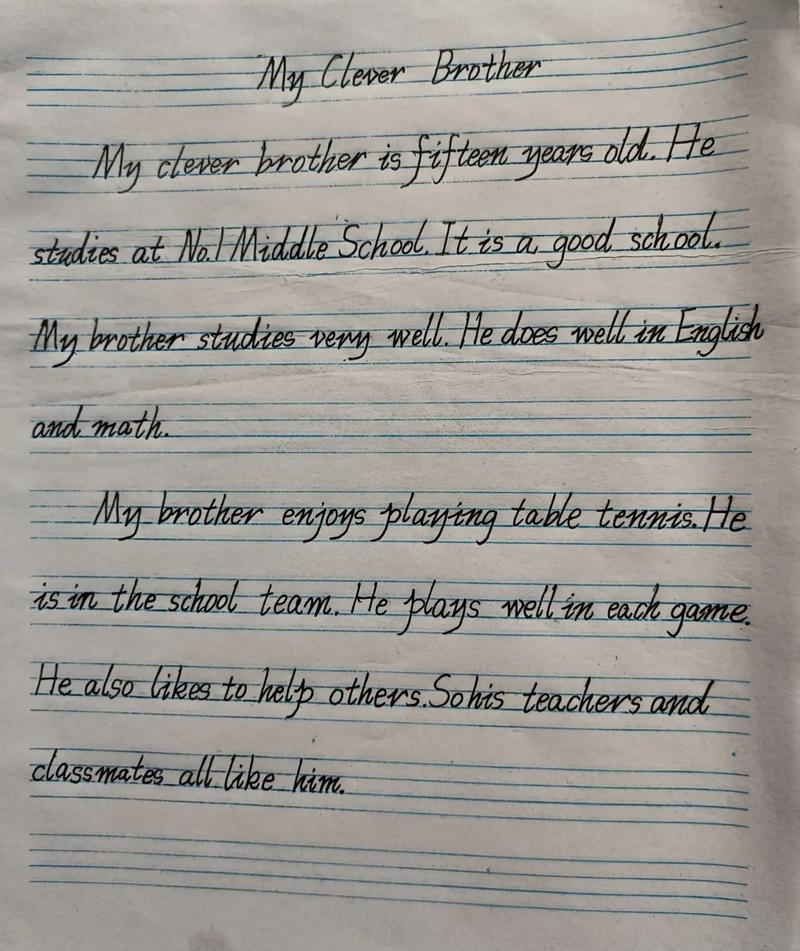 My Clever Brother
My clever brother is fifteen years old. He
studies at No.1 Middle School. It is a good school.
My brother studies very well. He does well in English
and math.
My brother enjoys playing table tennis. He
is in the school team. He plays well in each game.
He also likes to help others. So his teachers and
classmates all like him.